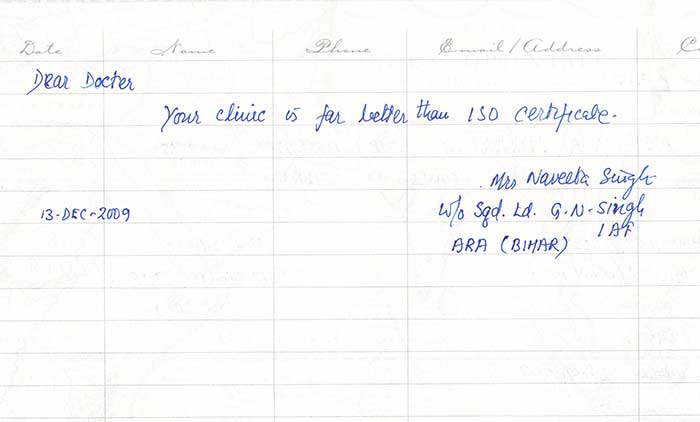 Date Name Phone Email/Address
Dear Docter
Your clinic is far better than ISO certificate.
Mrs Naveeta Singh
13-DEC-2009 W/o Sqd. Ld. G.N. Singh
IAF
ARA (BIHAR)